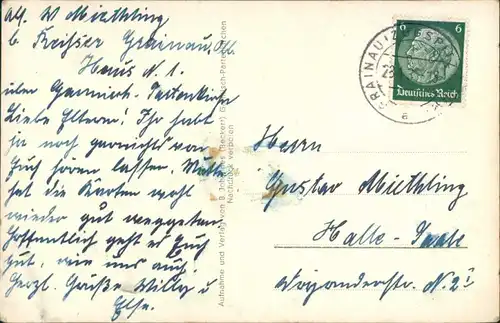 Abs. W Miethling
b Kreißer Grainau, Obb.
Haus N. 1.
über Garmisch-Partenkirche
Liebe Eltern! Ihr habt
ja noch garnichts von
Euch hören lassen. Mutter
hat die Karten wohl
wieder gut weggetan.
Hoffentlich geht es Euch
gut, wie uns auch
Herzl. Grüße Willy u
Else.
Aufnahme und Verlag von B. Johannes Garmisch-Partenkirchen
Nachdruck verboten
GRAINAU
6 6
Deutsches Reich
a
Herrn
Gustav Miethling
Halle-Saale
N. 2